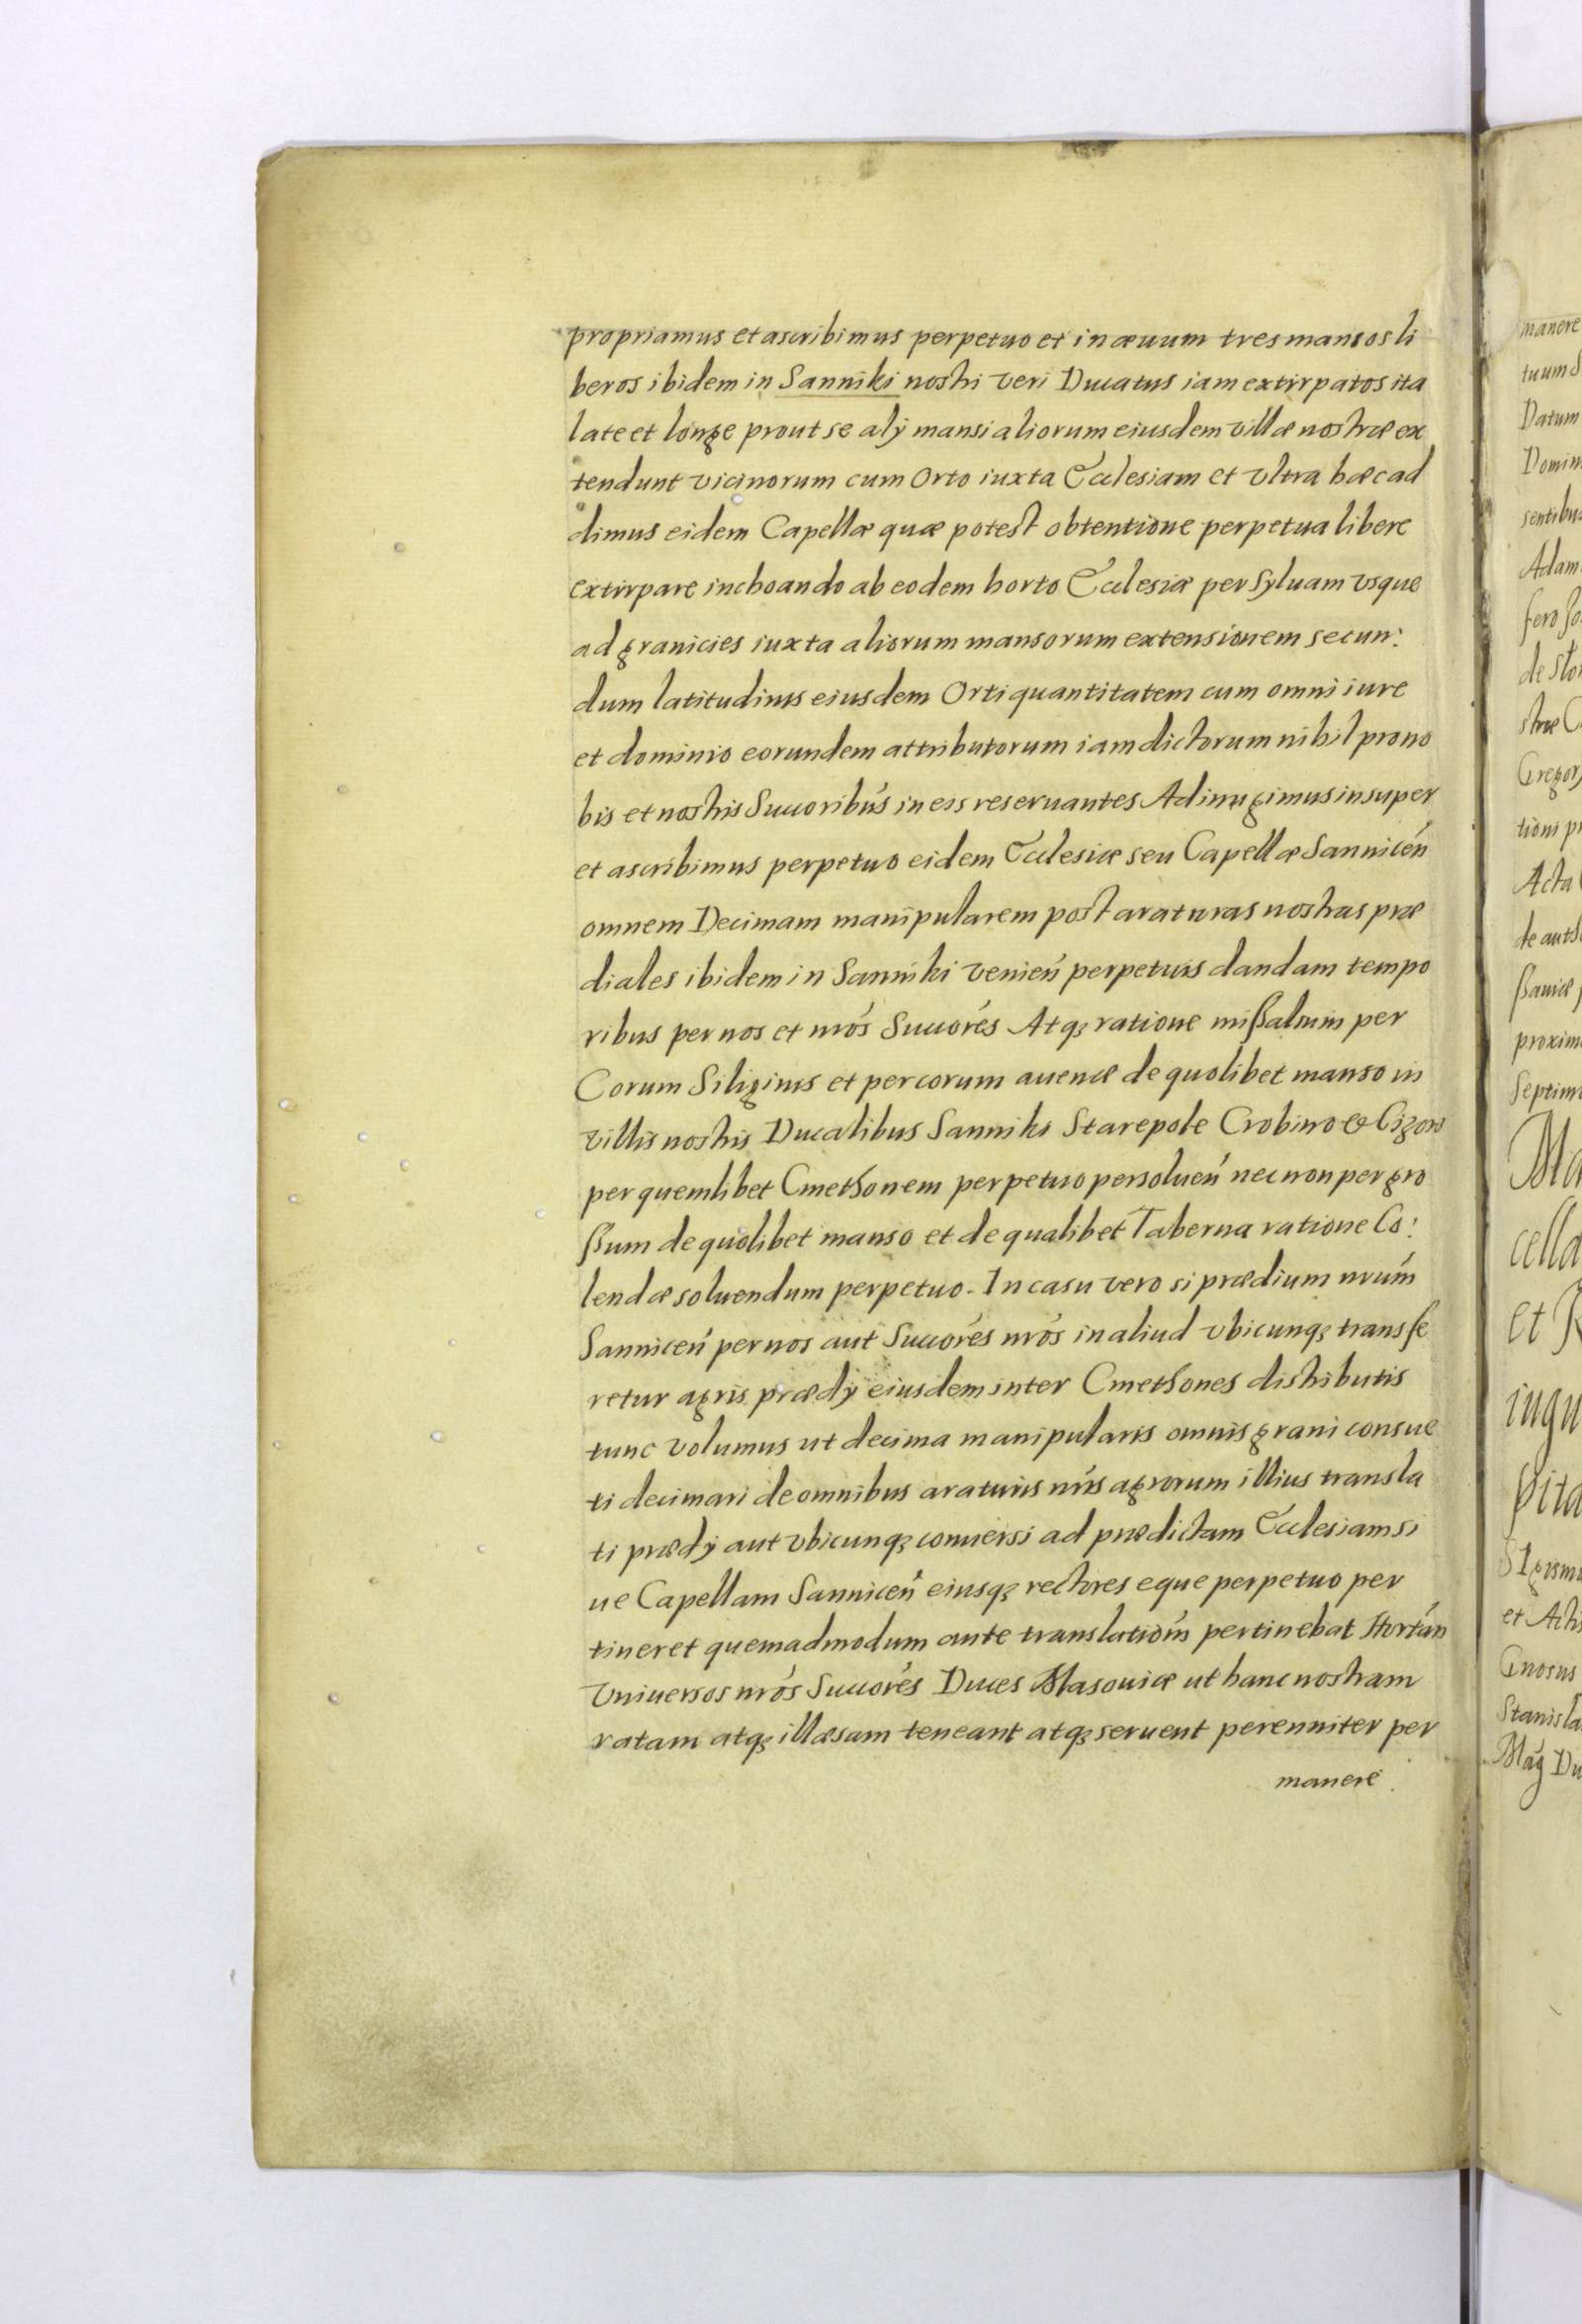 propriamus et ascribimus perpetuo et in æuum tres mansos li
beros ibidem in Sanniki nostri veri Ducatus iam extirpatos ita
late et longe prout se alÿ mansi aliorum eiusdem villæ nostræ ex
tendunt vicinorum cum Orto iuxta Ecclesiam et vltra hæc ad
dimus eidem Capellæ quæ potest obtentione perpetua libere
extirpare inchoando ab eodem horto Ecclesiæ per Syluam vsque
ad granicies iuxta aliorum mansorum extensionem secun:
dum latitudinis eiusdem Orti quantitatem cum omni iure
et dominio eorundem attributorum iam dictorum nihil pro no
bis et nostris Succoribús in eis reseruantes Adiungimus insuper
et ascribimus perpetuo eidem Ecclesiæ seu Capellæ Sannicéń
omnem Decimam manipularem post araturas nostras præ
diales ibidem in Sanniki venień perpetuis dandam tempo
ribus per nos et nrós Succorés Atqꝫ ratione missalium per
Corum Siliginis et per corum auenæ de quolibet manso in
villis nostris Ducalibus Sanniki Starepole Crobino & Cizow
per quemlibet Cmethonem perpetuo persolueń nec non per gro
ssum de quolibet manso et de qualibet Taberna ratione Co:
lendæ soluendum perpetuo. In casu vero si prædium nrúm
Sanniceń per nos aut Succorés nrós in aliud vbicunqꝫ transfe
retur agris prædÿ eiusdem inter Cmethones distributis
tunc volumus ut decima manipularis omnis grani consue
ti decimari de omnibus araturis nrís agrorum illius transla
ti prædÿ aut vbicunqꝫ conuersi ad prædictam Ecclesiam si
ue Capellam Sanniceń eiusqꝫ rectores eque perpetuo per
tineret quemadmodum ante translatióm pertinebat Hortán
Vniuersos nrós Succorés Duces Masouiæ ut hanc nostram
ratam atqꝫ illæsam teneant atqꝫ seruent perenniter per
manere
manere
Datum
Adam
Acta
proxim
et Acti
Gnosus
Stanisla
Mag Du